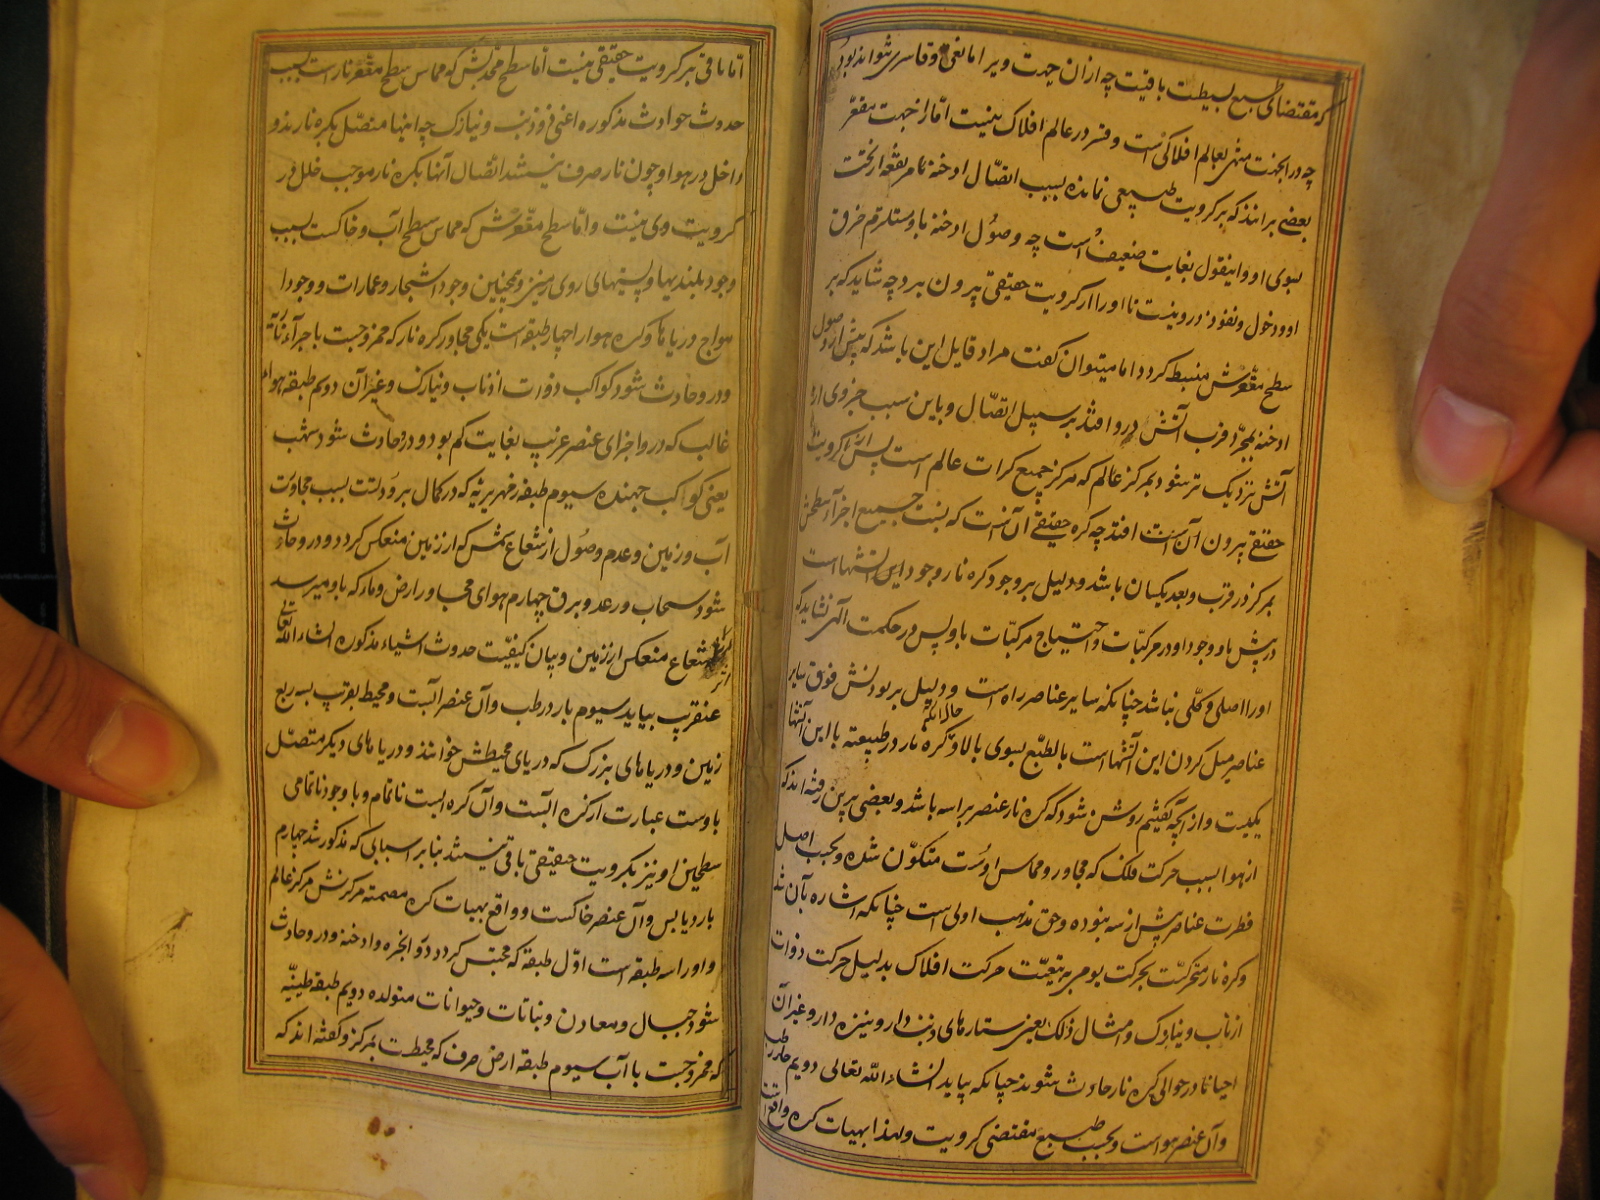 که مقتضای طبع بسیطست باقیست چه از ان جهت ویرا مانعی و قاسری نتواند بود
چه در انجهت منتهی بعالم افلاکی است و قسر در عالم افلاک نیست اما از جهت مقعر
بعضی برانند که بر کرویت طبیعی نمانده بسبب اتصال ادخنه مرتفعه از تحت
بسوی او و اینقول بغایت ضعیف است چه وصول ادخنه باو مستلزم خرق
او و دخول و نفوذ در و نیست تا او را از کرویت حقیقی بیرون برد چه شاید که بر
سطح مقعرش منبسط کردد اما میتوان کفت مراد قایل این باشد که پیش از وصول
ادخنه بمجرد قرب آتش درو افتد بر سبیل اتصال و باین سبب جزوی از
آتش نزدیک تر شود بمرکز عالم که مرکز جمیع کرات عالم است پس از کرویت
حقیقی بیرون افتد چه کره حقیقی آن است که نسبت جمیع اجزآء سطحش
بمرکز در قرب و بعد یکسان باشد و دلیل بر وجود کره نار وجود این آتشهاست
در پیش ما و وجود او در مرکبات و احتیاج مرکبات باو پس در حکمت الهی نشاید که
او را اصلی و کلی نباشد چنانکه سایر عناصر راست و دلیل بر بودنش فوق سایر
عناصر میل کردن این آتشهاست بالطبع بسوی بالا و حال آنکه کره نار در طبیعت با این آتشها
یکیست و از آنچه کفتیم روشن شود که کره نار عنصر براسه باشد و بعضی برین رفته اند که
از هوا بسبب حرکت فلک که مجاور و مماس اوست متکون شده و بحسب اصل
فطرت عناصر بیش از سه نبوده و حق مذهب اولی است چنانکه اشاره بآن شد
و کره نار متحرکست بحرکت یومیه بتبعیت حرکت افلاک بدلیل حرکت ذوات
اذناب و نیازک و امثال ذلک یعنی ستارهای ذنب دار و نیزه دار و غیر آن
احیانا در حوالی کره نار حادث شوند چنانکه بیاید انشاء الله تعالی دویم حار رطب
و آن عنصر هواست و بحسب طبع مقتضی کرویت و لهذا بهیات کره واقع است
اما باقی بر کرویت حقیقی نیست اما سطح محدبش که مماس سطح مقعر نار است بسبب
حدوث حوادث مذکوره اعنی ذو ذنب و نیازک چه اینها متصل بکره نار ند و
داخل در هوا و چون نار صرف نیستند اتصال آنها بکره نار موجب خلل در
کرویت وی نیست و اما سطح مقعرش که مماس سطح آب و خاکست بسبب
وجود بلندیها و پستیهای روی زمین و همچنین وجود اشجار و عمارات و وجود ا
مواج دریاها و کره هوا را چهار طبقه است یکی مجاور کره نار که ممزوجست با جزآء ناریه
و درو حادث شود کواکب ذوات اذناب و نیازک و غیر آن دویم طبقه هوای
غالب که درو اجزای عنصر غریب بغایت کم بود و درو حادث شود شهب
یعنی کواکب جهنده سیوم طبقه زمهریریه که در کمال برودتست بسبب مجاورت
آب و زمین و عدم وصول از شعاع شمس که از زمین منعکس کردد و درو حادث
شود سحاب و رعد و برق چهارم هوای مجاور ارض و ماء که باو میرسد
اثر شعاع منعکس از زمین و بیان کیفیت حدوث اشیاء مذکوره انشاء الله تعالی
عنقریب بیاید سیوم بارد رطب و آن عنصر آبست و محیط بقریب بسه ربع
زمین و دریاهای بزرک که دریای محیطش خوانند و دریاهای دیکر متصل
باوست عبارت از کره آبست و آن کره ایست ناتمام و با وجود ناتمامی
سطحین او نیز بکرویت حقیقی باقی نیستند بنابر اسبابی که مذکور شد چهارم
بارد یابس و آن عنصر خاکست و واقع بهیات کره مصمته مرکزش مرکز عالم
و او را سه طبقه است اول طبقه که محتبس کردد درو ابخره و ادخنه و درو حادث
شود جبال و معادن و نباتات و حیوانات متولده دویم طبقه طینیه
که ممزوجست با آب سیوم طبقه ارض صرف که محیطست بمرکز و کفته اند که